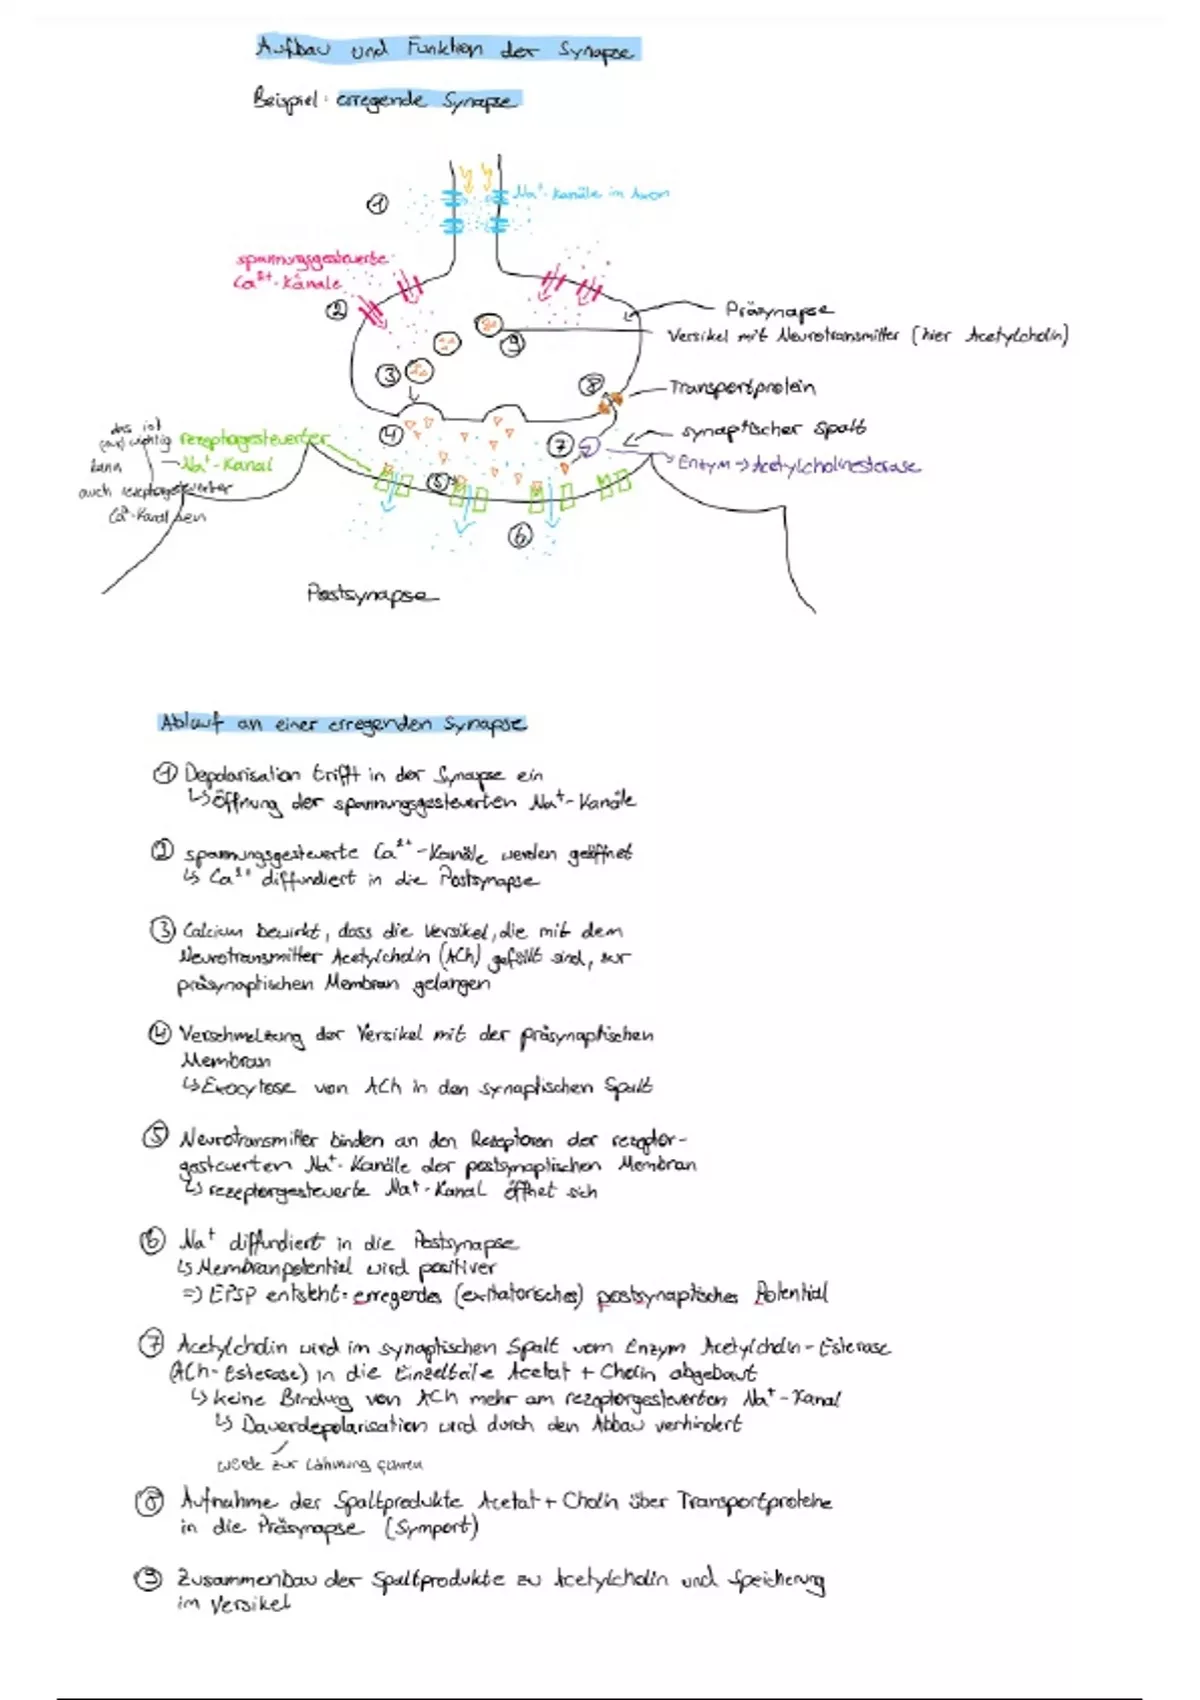 Aufbau und Funktion der Synapse
Beispiel: erregende Synapse
①
Na⁺-Kanäle im Axon
spannungsgesteuerte
Ca²⁺-Kanäle
②
Präsynapse
Versikel mit Neurotransmitter (hier Acetylcholin)
⑨
③
⑧
Transportprotein
das ist
wichtig
rezeptorgesteuerter
④
⑦
synaptischer Spalt
kann
Na⁺-Kanal
Enzym → Acetylcholinesterase
auch rezeptorgesteuerter
⑤
Ca²⁺-Kanal sein
⑥
Postsynapse
Ablauf an einer erregenden Synapse
① Depolarisation trifft in der Synapse ein
↳ Öffnung der spannungsgesteuerten Na⁺-Kanäle
② spannungsgesteuerte Ca²⁺-Kanäle werden geöffnet
↳ Ca²⁺ diffundiert in die Postsynapse
③ Calcium bewirkt, dass die Versikel, die mit dem
Neurotransmitter Acetylcholin (ACh) gefüllt sind, zur
präsynaptischen Membran gelangen
④ Verschmelzung der Versikel mit der präsynaptischen
Membran
↳ Exocytose von ACh in den synaptischen Spalt
⑤ Neurotransmitter binden an den Rezeptoren der rezeptor-
gesteuerten Na⁺-Kanäle der postsynaptischen Membran
↳ rezeptorgesteuerte Na⁺-Kanal öffnet sich
⑥ Na⁺ diffundiert in die Postsynapse
↳ Membranpotential wird positiver
=> EPSP entsteht: erregendes (exitatorisches) postsynaptisches Potential
⑦ Acetylcholin wird im synaptischen Spalt vom Enzym Acetylcholin-Esterase
(ACh-Esterase) in die Einzelteile Acetat + Cholin abgebaut
↳ keine Bindung von ACh mehr am rezeptorgesteuerten Na⁺-Kanal
↳ Dauerdepolarisation wird durch den Abbau verhindert
würde zur Lähmung führen
⑧ Aufnahme der Spaltprodukte Acetat + Cholin über Transportproteine
in die Präsynapse (Symport)
⑨ Zusammenbau der Spaltprodukte zu Acetylcholin und Speicherung
im Versikel